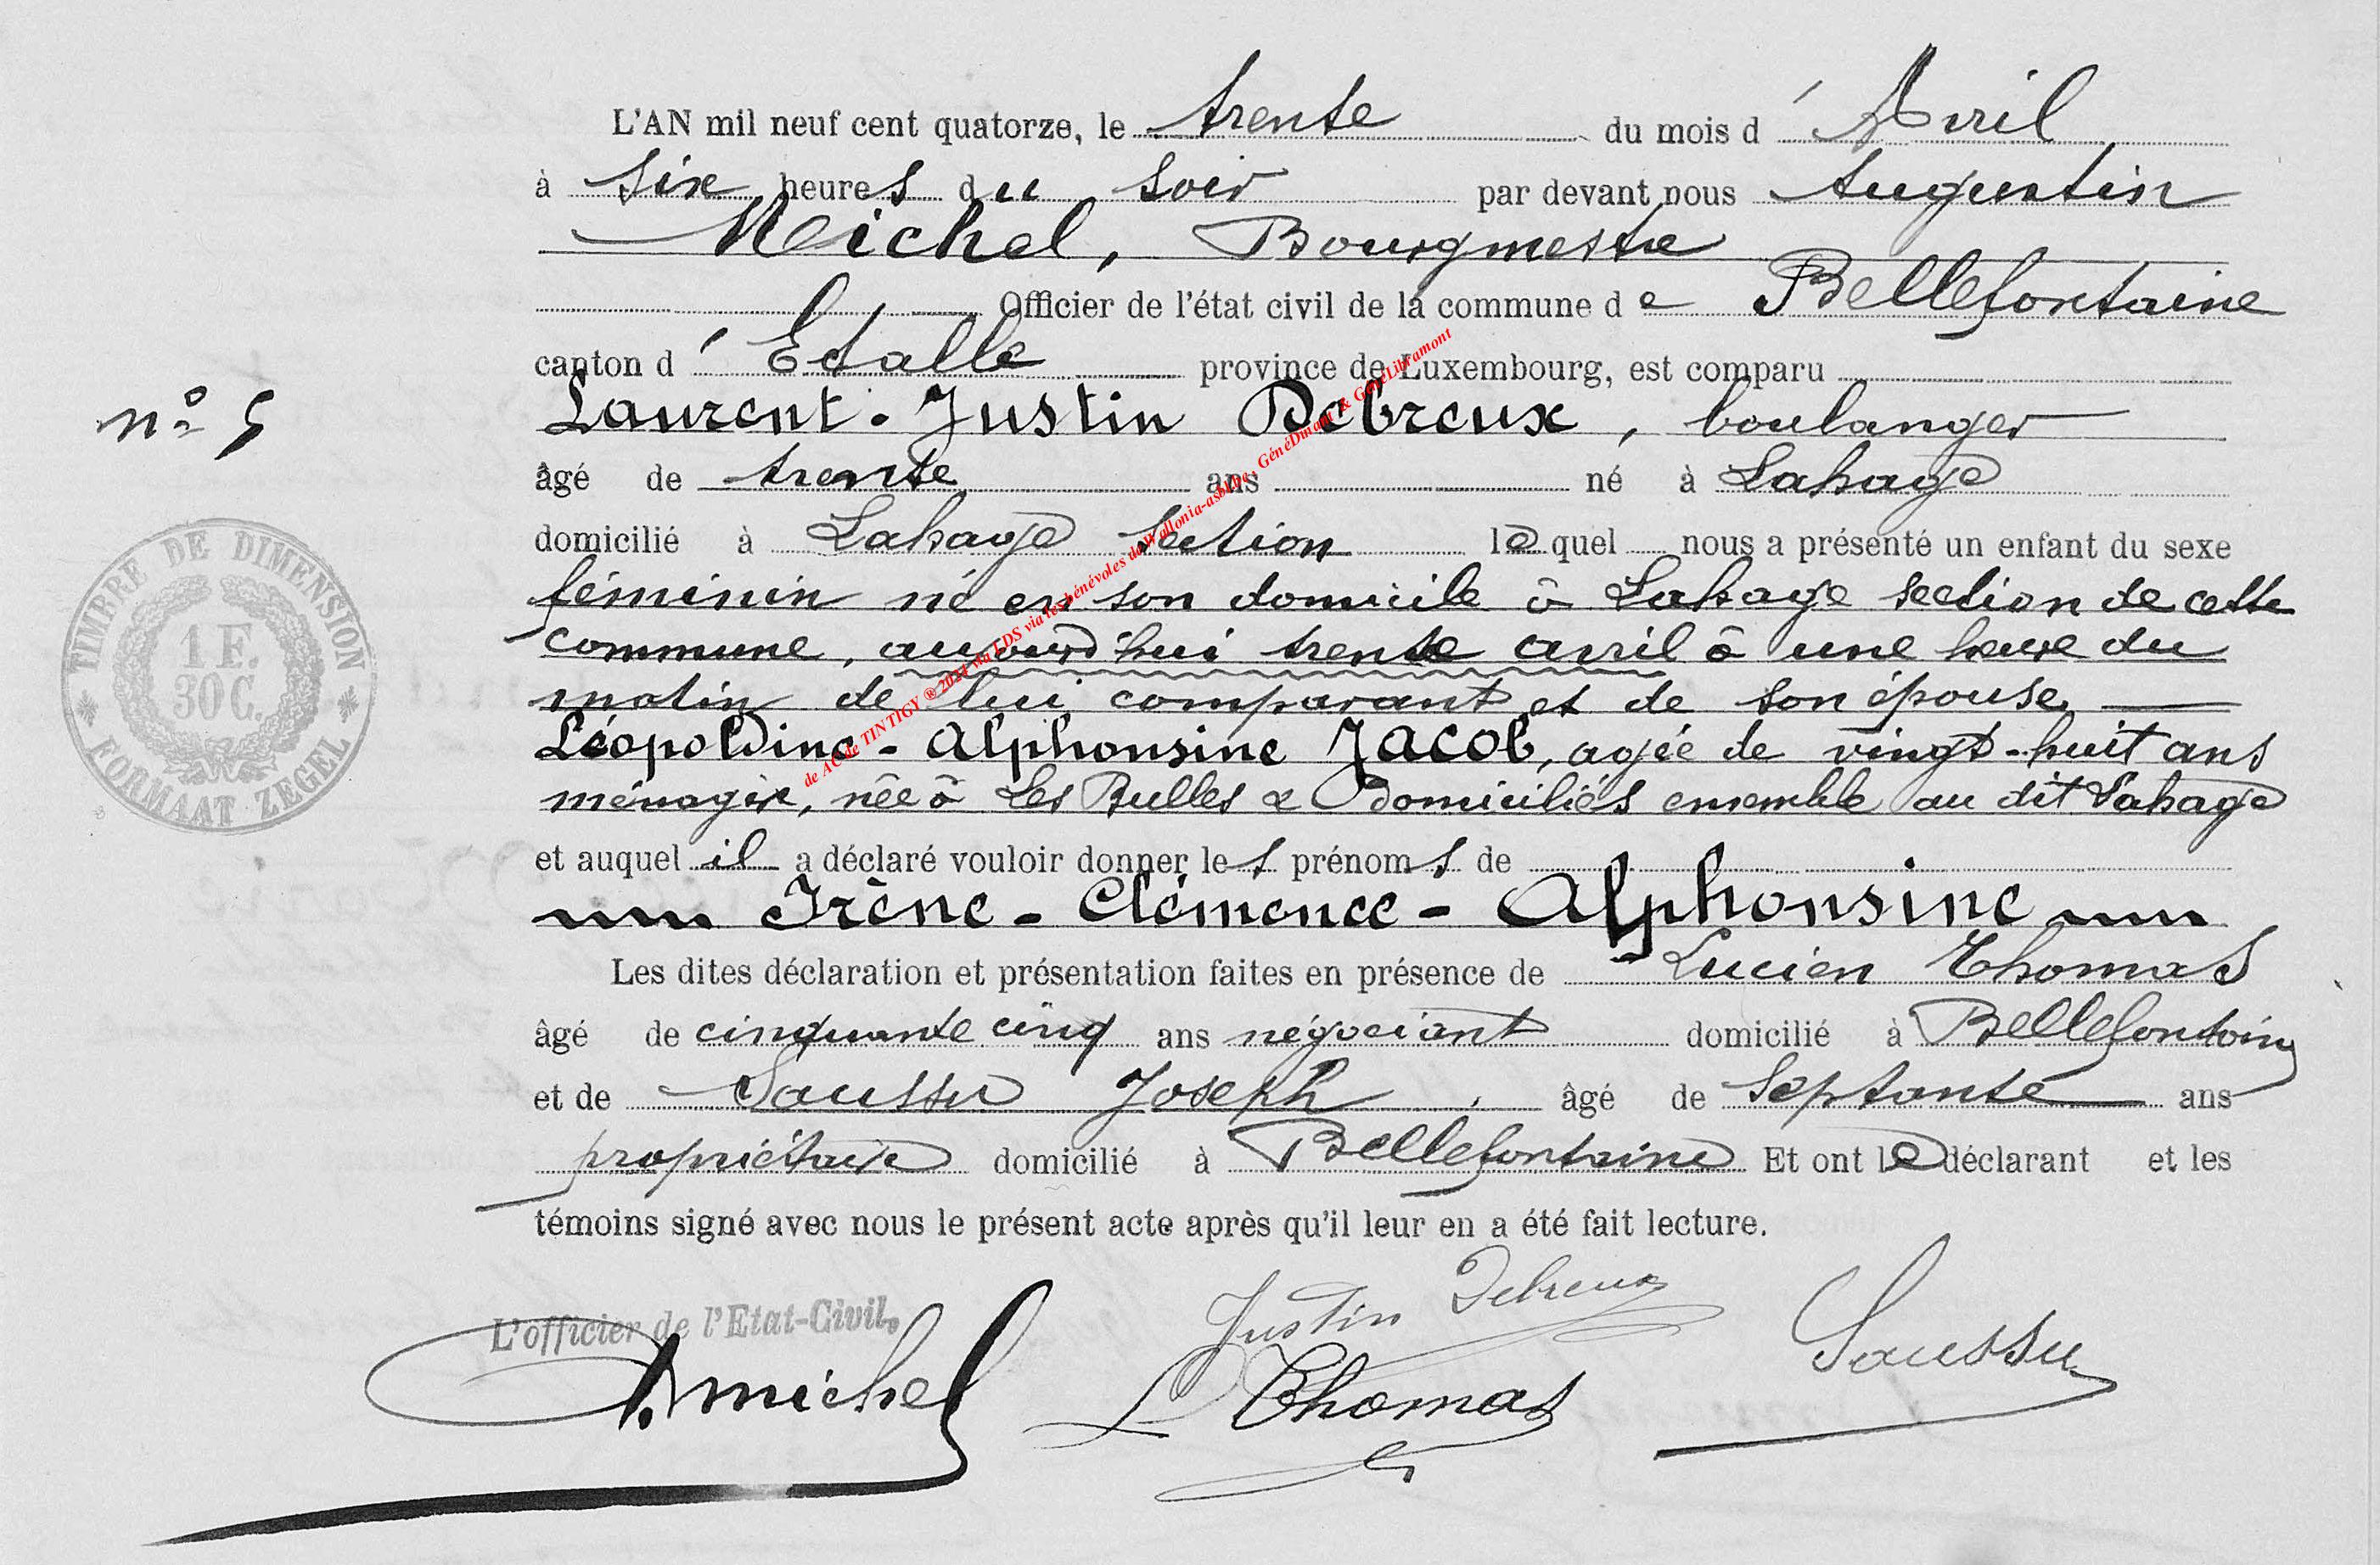 L'AN mil neuf cent quatorze, le trente du mois d'Avril
à six heures du soir par devant nous Augustin
Michel, Bourgmestre
Officier de l'état civil de la commune de Bellefontaine
canton d'Etalle province de Luxembourg, est comparu
Laurent-Justin Debreux, boulanger
âgé de trente ans né à Lahage
domicilié à Lahage section lequel nous a présenté un enfant du sexe
féminin né en son domicile à Lahage section de cette
commune, aujourd'hui trente avril à une heure du
matin de lui comparant et de son épouse
Léopoldine-Alphonsine Jacob, agée de vingt-huit ans
ménagère, née à Les Bulles & domiciliés ensemble au dit Lahage
et auquel il a déclaré vouloir donner les prénoms de
Irène-Clémence-Alphonsine
Les dites déclaration et présentation faites en présence de Lucien Thomas
âgé de cinquante cinq ans négociant domicilié à Bellefontaine
et de Saussu Joseph, âgé de septante ans
propriétaire domicilié à Bellefontaine Et ont le déclarant et les
témoins signé avec nous le présent acte après qu'il leur en a été fait lecture.
n° 5
TIMBRE DE DIMENSION
1 F.
30 C.
FORMAAT ZEGEL
L'officier de l'Etat-Civil,
A. Michel
Justin Debreux
L Thomas
Saussu
de AC de TINTIGY ® 2024 via FDS via les bénévoles de Wallonia-asbl.be, GénéDinant & GénéLibramont